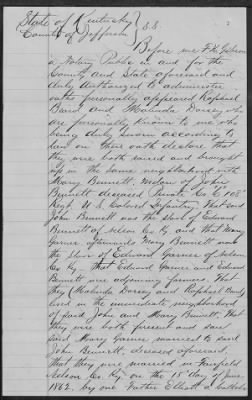 State of Kentucky
County of Jefferson } S.S.
Before me
a Notary Public in and for the
County and State aforesaid and
duly authorized to administer
oaths personally appeared Raphael
and Malinda Dorsey who
are personally known to me who
being duly sworn according to
law on their oath declare that
they were both raised and brought
up in the same neighborhood with
Mary Bennett, widow of John
Bennett deceased private Co. 108"
Regt U.S. Colored Infantry That said
John Bennett was the slave of Edward
Bennett of Nelson Co. Ky. and that Mary
Garner afterwards Mary Bennett was
the slave of Edward Garner of Nelson
Co Ky. That Edward Garner and Edward
Bennett were adjoining farmers. That
they (Malinda Dorsey and Raphael
lived in the immediate neighborhood
of said John and Mary Bennett. That
they were both present and saw
said Mary Garner married to said
John Bennett, deceased aforesaid,
that they were married in Fairfield
Nelson Co. Ky. on the day of June
1862, by one Father Elliott a Catholic